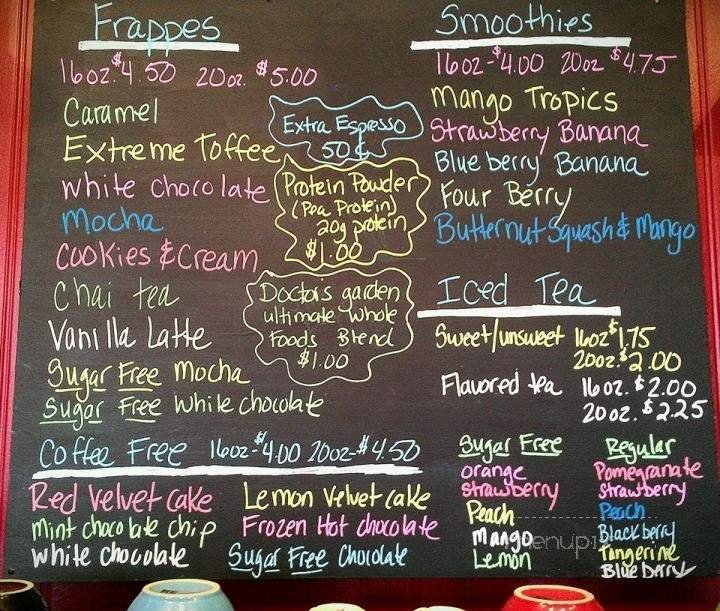 Frappes
16oz. $4.50 20oz. $5.00
Caramel
Extreme Toffee
White chocolate
Mocha
Cookies & Cream
Chai tea
Vanilla Latte
Sugar Free Mocha
Sugar Free White chocolate
Extra Espresso
50¢
Protein Powder
(Pea Protein)
20g protein
$1.00
Doctor's garden
ultimate whole
Foods Blend
$1.00
Coffee Free 16oz-$4.00 20oz-$4.50
Red Velvet cake
Mint chocolate chip
White chocolate
Lemon Velvet cake
Frozen Hot chocolate
Sugar Free Chocolate
Smoothies
16oz-$4.00 20oz $4.75
Mango Tropics
Strawberry Banana
Blueberry Banana
Four Berry
Butternut Squash & Mango
Iced Tea
Sweet/unsweet 16oz $1.75
20oz. $2.00
Flavored tea 16oz. $2.00
20oz. $2.25
Sugar Free
orange
strawberry
Peach
Mango
Lemon
Regular
Pomegranate
Strawberry
Peach
Blackberry
Tangerine
Blueberry